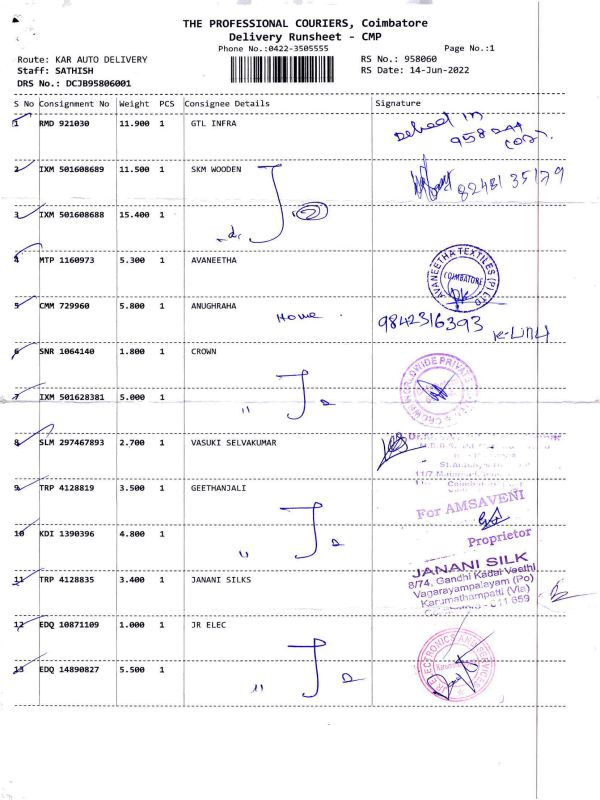 THE PROFESSIONAL COURIERS, Coimbatore
Delivery Runsheet - CMP
Phone No.:0422-3505555
Page No.:1
Route: KAR AUTO DELIVERY
RS No.: 958060
Staff: SATHISH
RS Date: 14-Jun-2022
DRS No.: DCJB95806001
S No Consignment No Weight PCS Consignee Details Signature
1 RMD 921030 11.900 1 GTL INFRA
2 IXM 501608689 11.500 1 SKM WOODEN 8248135179
3 IXM 501608688 15.400 1
4 MTP 1160973 5.300 1 AVANEETHA AVANEETHA TEXTILES (P) LTD COIMBATORE
5 CMM 729960 5.800 1 ANUGHRAHA Home 9842316393
6 SNR 1064140 1.800 1 CROWN
7 IXM 501628381 5.000 1
8 SLM 297467893 2.700 1 VASUKI SELVAKUMAR
9 TRP 4128819 3.500 1 GEETHANJALI For AMSAVENI
10 KDI 1390396 4.800 1 Proprietor
11 TRP 4128835 3.400 1 JANANI SILKS JANANI SILK
8/74, Gandhi Kadai Veethi
Vagarayampalayam (Po)
Karumathampatti (Via)
12 EDQ 10871109 1.000 1 JR ELEC JR ELECTRONICS AND SERVICES
13 EDQ 14890827 5.500 1